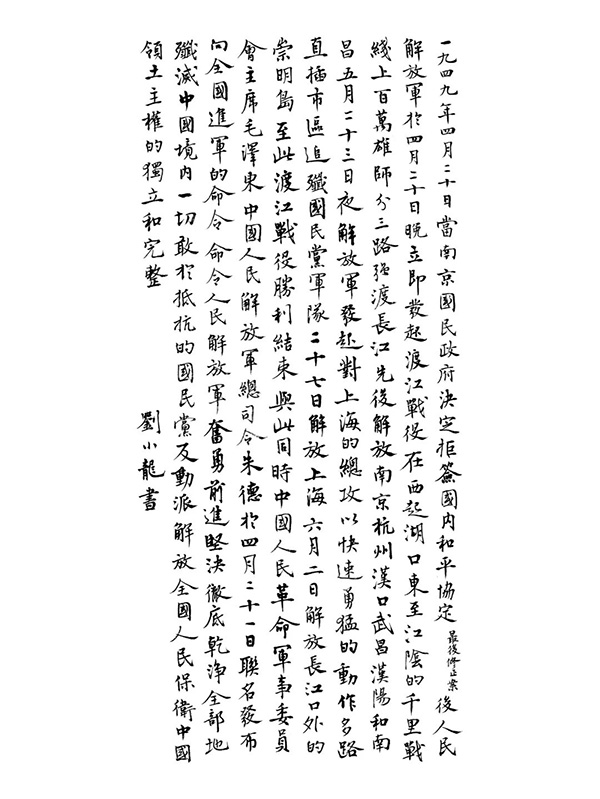 一九四九年四月二十日當南京國民政府決定拒簽國内和平協定最後修正案後人民
解放軍於四月二十日晚立即發起渡江戰役在西起湖口東至江陰的千里戰
綫上百萬雄師分三路强渡長江先後解放南京杭州漢口武昌漢陽和南
昌五月二十三日夜解放軍發起對上海的總攻以快速勇猛的動作多路
直插市區追殲國民黨軍隊二十七日解放上海六月二日解放長江口外的
崇明島至此渡江戰役勝利結束與此同時中國人民革命軍事委員
會主席毛澤東中國人民解放軍總司令朱德於四月二十一日聯名發布
向全國進軍的命令命令人民解放軍奮勇前進堅決徹底乾净全部地
殲滅中國境内一切敢於抵抗的國民黨反動派解放全國人民保衛中國
領土主權的獨立和完整
劉小龍書